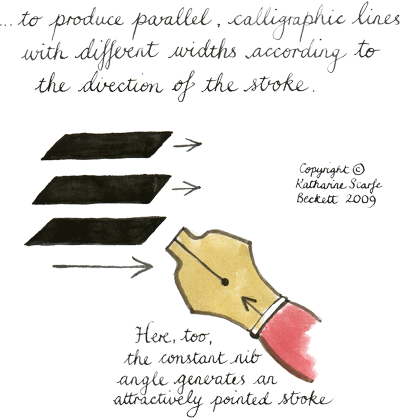 ...to produce parallel, calligraphic lines
with different widths according to
the direction of the stroke.
Copyright ©
Katharine Scarfe
Beckett 2009
Here, too,
the constant nib
angle generates an
attractively pointed stroke